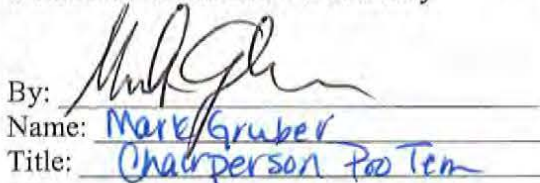 By:
Name: Mark Gruber
Title: Chairperson Poo Tem